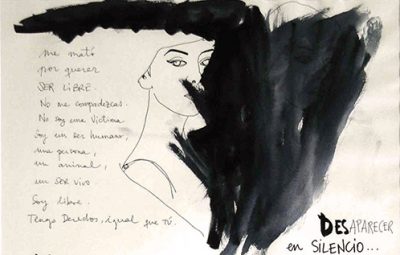 me mató
por querer
SER LIBRE.
No me compadezcas.
No soy una victima
Soy un ser humano,
una persona,
un animal,
un SER VIVO
Soy libre.
Tengo Derechos, igual que tú.
DESAPARECER
en SILENCIO...